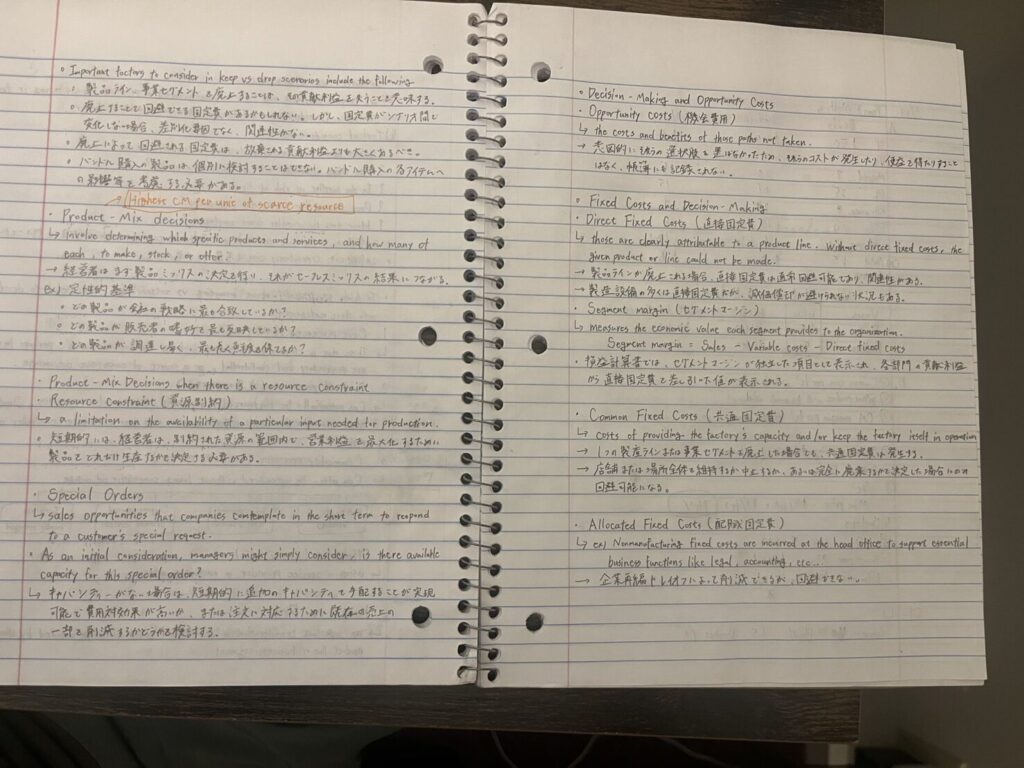 ○ Important factors to consider in keep vs drop scenarios include the following
○ 製品ライン、事業セグメントを廃止することは、その貢献利益を失うことを意味する。
○ 廃止することで回避できる固定費があるかもしれない。しかし、固定費がシナリオ間で
変化しない場合、差別化要因でなく、関連性がない。
○ 廃止によって回避される固定費は、放棄される貢献利益よりも大きくあるべき。
○ バンドル購入の製品は個別に検討することはできない。バンドル購入の各アイテムへ
の影響等を考慮する必要がある。
Highest CM per unit of scarce resource
・ Product-Mix decisions
↳ involve determining which specific products and services, and how many of
each, to make, stock, or offer.
→ 経営者はまず製品ミックスの決定を行い、それがセールスミックスの結果につながる。
ex) 定性的基準
○ どの製品が会社の戦略に最も合致しているか？
○ どの製品が販売者の嗜好を最も反映しているか？
○ どの製品が調達し易く、最も長く鮮度を保てるか？
・ Product-Mix Decisions when there is a resource constraint
・ Resource Constraint (資源制約)
↳ a limitation on the availability of a particular input needed for production.
○ 短期的には、経営者は、制約された資源の範囲内で、営業利益を最大化するために
製品をどれだけ生産するかを決定する必要がある。
・ Special Orders
↳ sales opportunities that companies contemplate in the short term to respond
to a customer's special request.
・ As an initial consideration, managers might simply consider, is there available
capacity for this special order?
↳ キャパシティーがない場合は、短期的に追加のキャパシティを手配することが実現
可能で費用対効果が高いか、または注文に対応するために既存の売上の
一部を削減するかどうかを検討する。
○ Decision-Making and Opportunity Costs
○ Opportunity costs (機会費用)
↳ the costs and benefits of those paths not taken.
→ 意図的に彼らの選択肢を選ばなかったため、彼らのコストが発生したり、便益を得たりすること
はなく、帳簿にも記録されない。
○ Fixed Costs and Decision-Making
・ Direct Fixed Costs (直接固定費)
↳ those are clearly attributable to a product line. Without direct fixed costs, the
given product or line could not be made.
→ 製品ラインが廃止される場合、直接固定費は通常回避可能であり、関連性がある。
→ 製造設備の多くは直接固定費だが、減価償却が避けられない状況もある。
・ Segment margin (セグメントマージン)
↳ measures the economic value each segment provides to the organization.
Segment margin = Sales - Variable costs - Direct fixed costs
・ 損益計算書では、セグメントマージンが独立した項目として表示され、各部門の貢献利益
から直接固定費を差し引いた値が表示される。
・ Common Fixed Costs (共通固定費)
↳ costs of providing the factory's capacity and/or keep the factory itself in operation
→ 1つの製産ラインまたは事業セグメントを廃止した場合でも、共通固定費は発生する。
→ 店舗または場所全体を維持するか中止するか、あるいは完全に廃棄するかを決定した場合にのみ
回避可能になる。
・ Allocated Fixed Costs (配賦固定費)
↳ ex) Nonmanufacturing fixed costs are incurred at the head office to support essential
business functions like legal, accounting, etc...
→ 企業再編トレイオフによって削減できるが、回避できない。